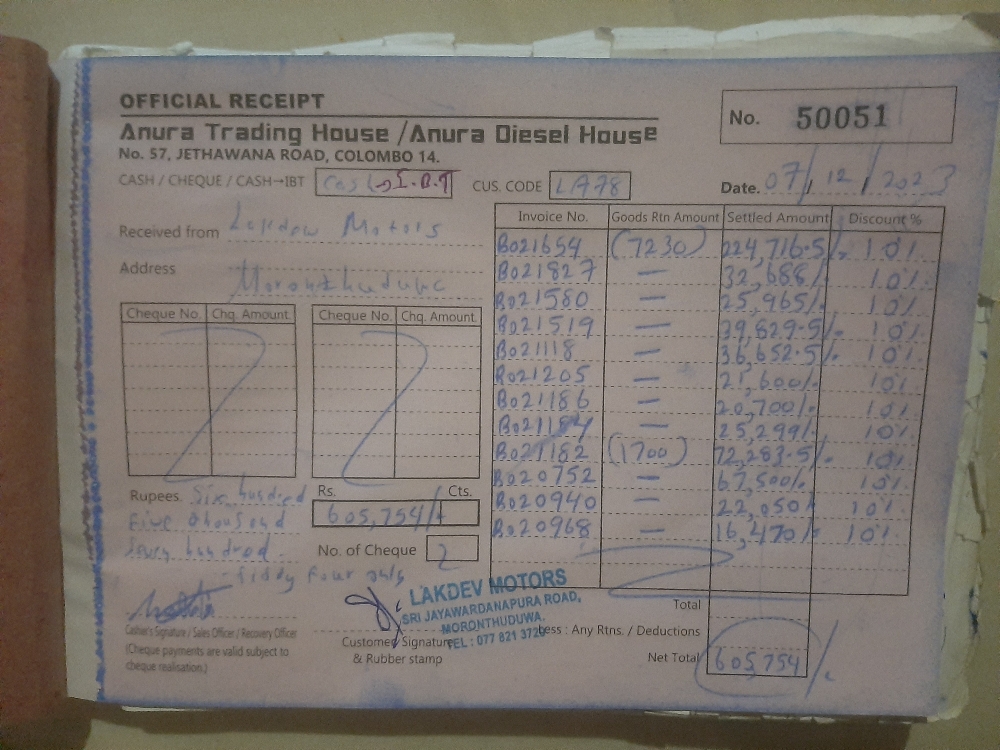 OFFICIAL RECEIPT
No. 50051
Anura Trading House / Anura Diesel House
No. 57, JETHAWANA ROAD, COLOMBO 14.
CASH / CHEQUE / CASH→IBT Cash→I.B.T CUS. CODE LA78 Date. 07/12/2023
Received from Motors
Address
Cheque No. Chq. Amount. Cheque No. Chq. Amount.
Invoice No. Goods Rtn Amount Settled Amount Discount %
B021654 (7230) 224,716.5/- 10%
B021827 — 32,688/- 10%
B021580 — 25,965/- 10%
B021519 — 39,829.5/- 10%
B021118 — 36,652.5/- 10%
B021205 — 21,600/- 10%
B021186 — 20,700/- 10%
B021184 — 25,299/- 10%
B021182 (1700) 72,283.5/- 10%
B020752 — 67,500/- 10%
B020940 — 22,050/- 10%
B020968 — 16,470/- 10%
Rupees. Six hundred
Five thousand
hundred
four only
Rs. Cts.
605,754/-
No. of Cheque 2
Cashier's Signature / Sales Officer / Recovery Officer
(Cheque payments are valid subject to
cheque realisation.)
LAKDEV MOTORS
SRI JAYAWARDANAPURA ROAD,
MORONTHUDUWA.
TEL : 077 821 3726
Customer Signature
& Rubber stamp
Total
Less : Any Rtns. / Deductions
Net Total 605,754/-